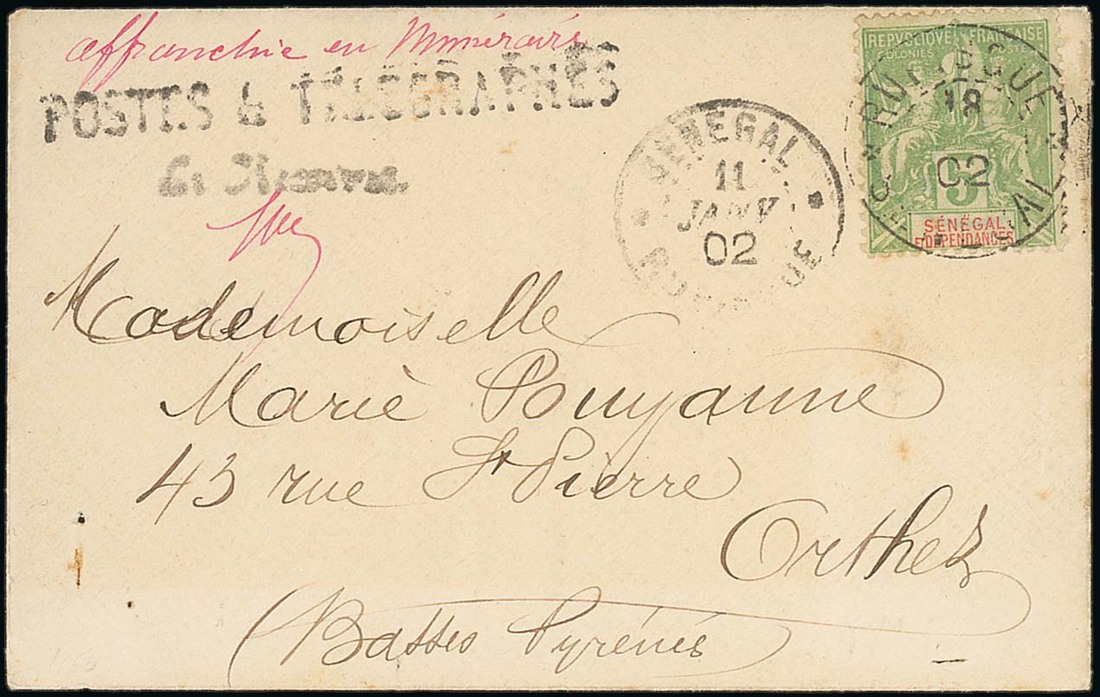 affranchie en Numéraire
POSTES & TÉLÉGRAPHES
Le
SÉNÉGAL
11
JANV
02
RUFISQUE
REPUBLIQUE FRANÇAISE
COLONIES POSTES
RUFISQUE
18
02
SÉNÉGAL
5
SÉNÉGAL
ET DÉPENDANCES
Mademoiselle
Marie Puyanne
43 rue St Pierre
Orthez
(Basses Pyrénés)